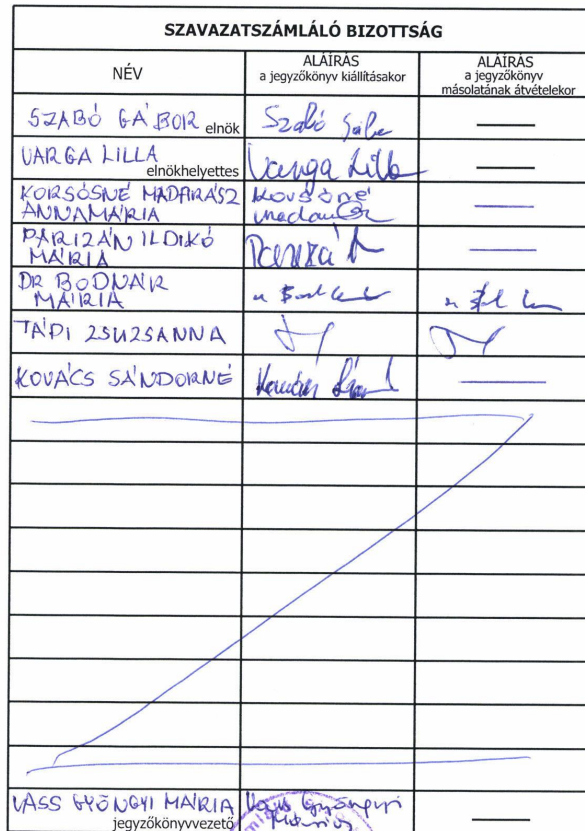 SZAVAZATSZÁMLÁLÓ BIZOTTSÁG
NÉV
ALÁÍRÁS
a jegyzőkönyv kiállításakor
ALÁÍRÁS
a jegyzőkönyv
másolatának átvételekor
SZABÓ GÁBOR elnök Szabó Gábor —
VARGA LILLA
elnökhelyettes Varga Lilla —
KORSÓSNÉ MADARÁSZ
ANNAMÁRIA Korsósné —
PARIZÁN ILDIKÓ
MÁRIA —
DR BODNÁR
MÁRIA
TÁPI ZSUZSANNA
KOVÁCS SÁNDORNÉ Kovács —
VASS GYÖNGYI MÁRIA
jegyzőkönyvvezető Vass Gyöngyi
Mária —